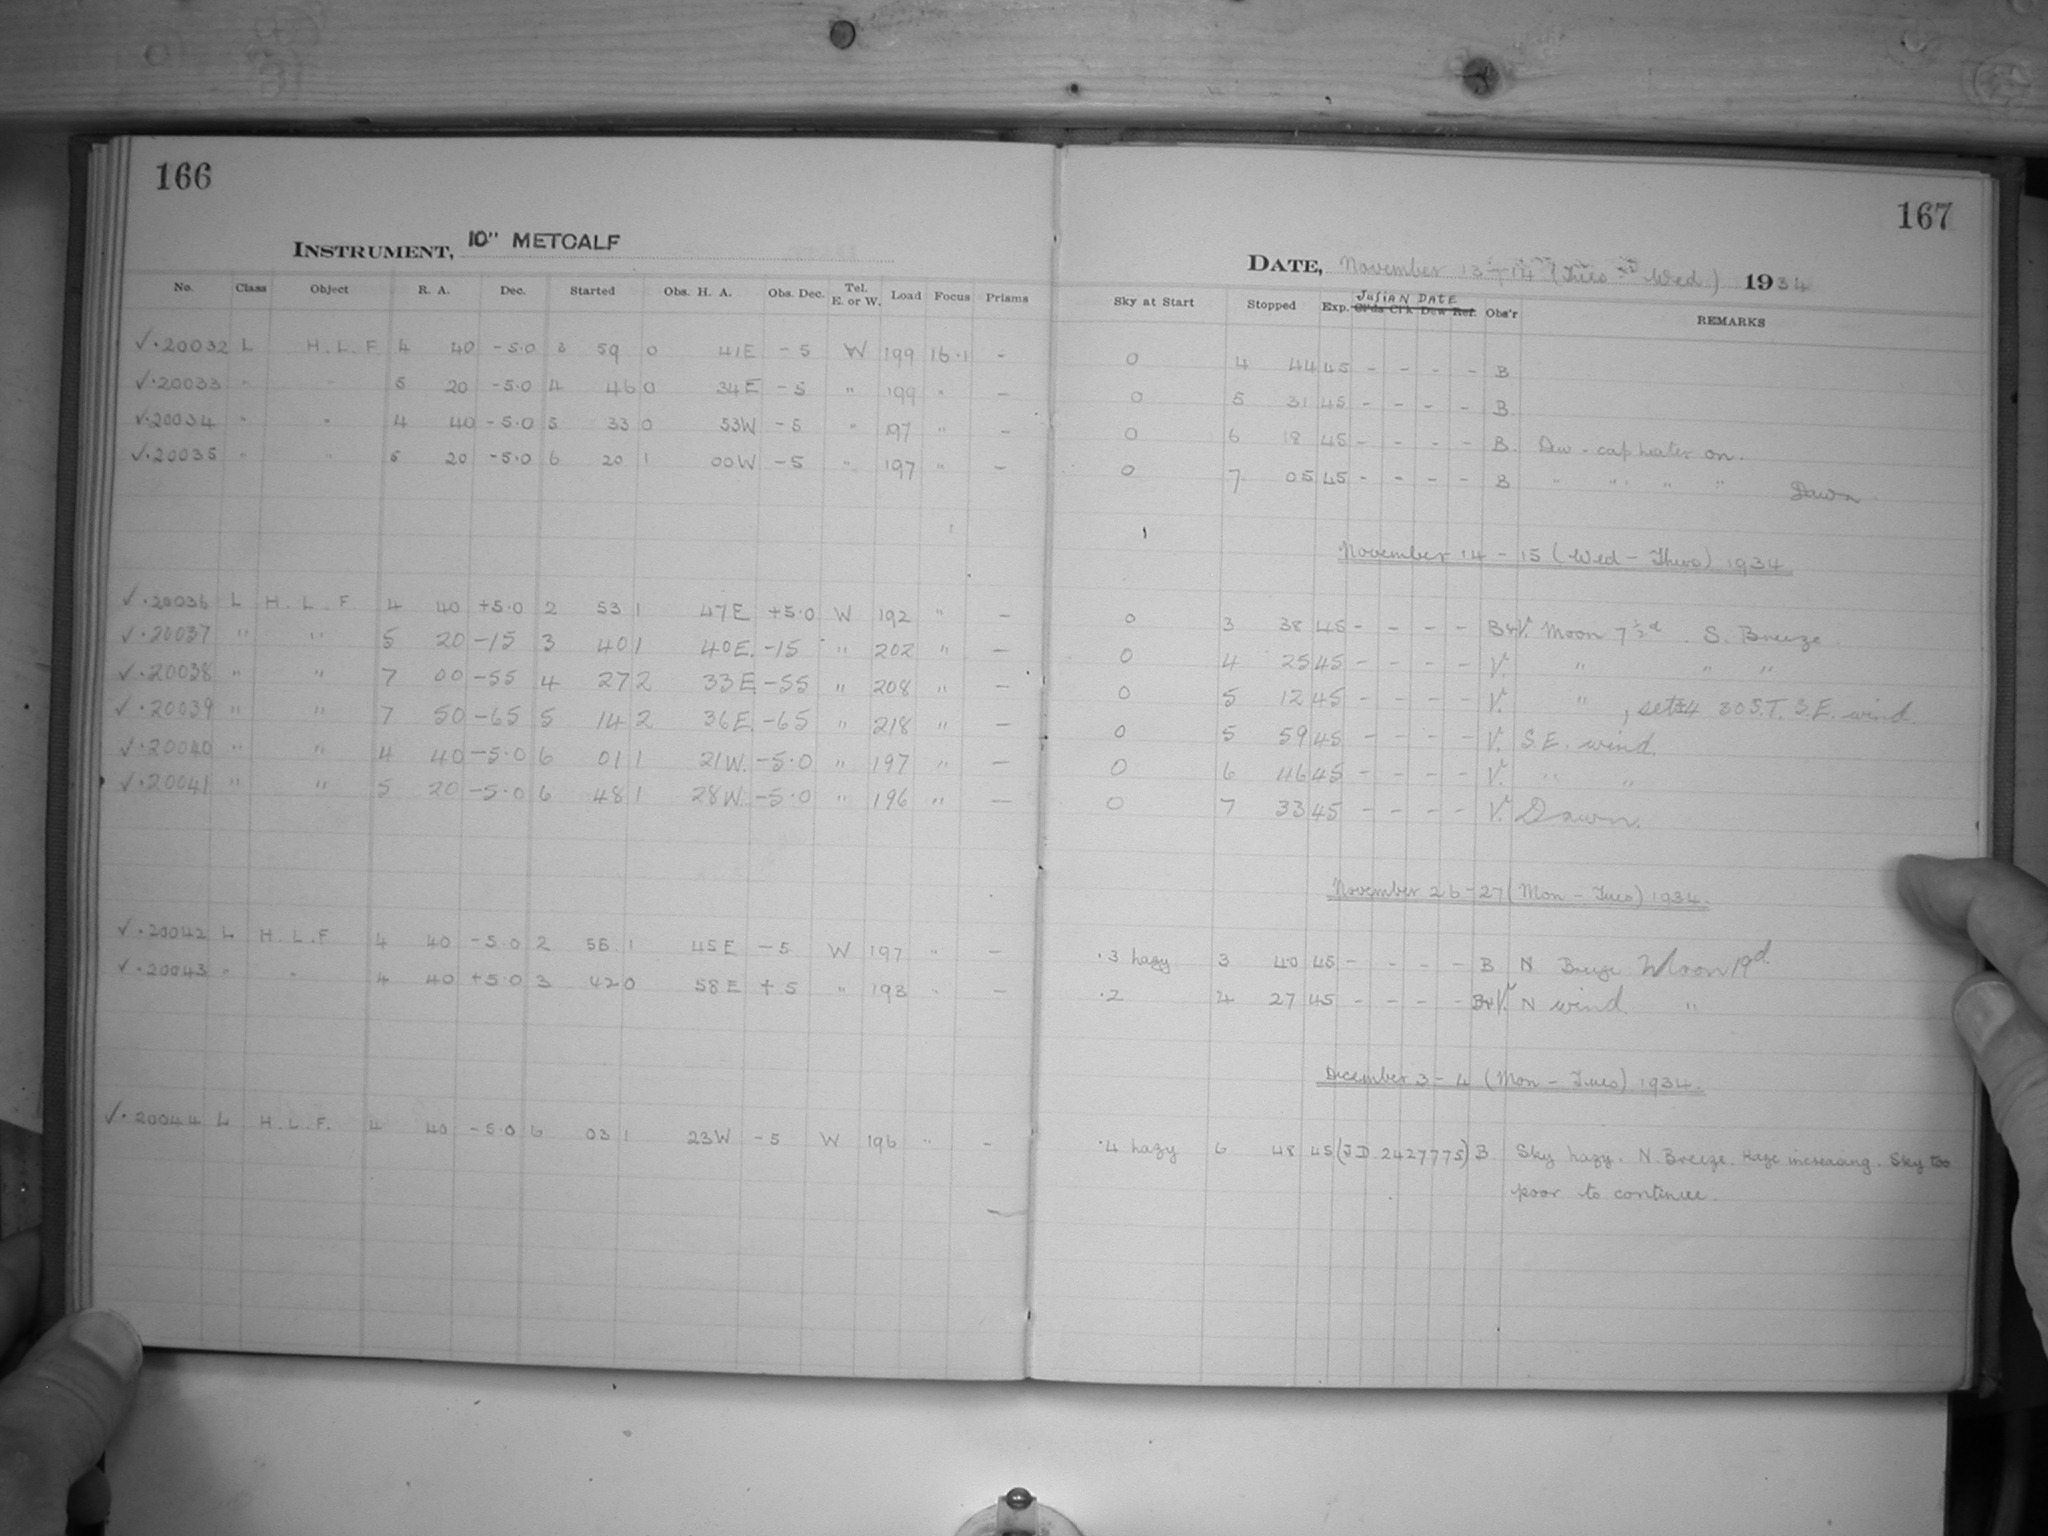 166
INSTRUMENT, 10" METCALF
No. Class Object R. A. Dec. Started Obs. H. A. Obs. Dec. Tel. E. or W. Load Focus Prisms
✓·20032 L H.L.F 4 40 -5.0 3 59 0 41E -5 W 199 16.1 -
✓·20033 " " 5 20 -5.0 4 46 0 34E -5 " 199 " -
✓·20034 " " 4 40 -5.0 5 33 0 53W -5 " 197 " -
✓·20035 " " 5 20 -5.0 6 20 1 00W -5 " 197 " -
✓·20036 L H.L.F 4 40 +5.0 2 53 1 47E +5.0 W 192 " -
✓·20037 " " 5 20 -15 3 40 1 40E. -15 " 202 " -
✓·20038 " " 7 00 -55 4 27 2 33E -55 " 208 " -
✓·20039 " " 7 50 -65 5 14 2 36E. -65 " 218 " -
✓·20040 " " 4 40 -5.0 6 01 1 21W. -5.0 " 197 " -
✓·20041 " " 5 20 -5.0 6 48 1 28W. -5.0 " 196 " -
✓·20042 L H.L.F 4 40 -5.0 2 55 1 45E -5 W 197 " -
✓·20043 " " 4 40 +5.0 3 42 0 58E +5 " 193 " -
✓·20044 L H.L.F. 4 40 -5.0 6 03 1 23W -5 W 196 " -
167
DATE, November 13-14 (Tues - Wed) 1934
Sky at Start Stopped Exp. JULIAN DATE Obs'r REMARKS
0 4 44 45 - - - - B
0 5 31 45 - - - - B
0 6 18 45 - - - - B. Dew-cap heater on.
0 7 05 45 - - - - B " " " " Dawn
November 14-15 (Wed-Thurs) 1934
0 3 38 45 - - - - B+V. Moon 7½d. S. Breeze.
0 4 25 45 - - - - V. " " "
0 5 12 45 - - - - V. " , set 4 30 S.T. S.E. wind
0 5 59 45 - - - - V. S.E. wind.
0 6 46 45 - - - - V. " "
0 7 33 45 - - - - V. Dawn.
November 26-27 (Mon-Tues) 1934.
·3 hazy 3 40 45 - - - - B N Breeze Moon 19d.
·2 4 27 45 - - - - B+V. N wind. "
December 3-4 (Mon-Tues) 1934.
·4 hazy 6 48 45 (J.D. 2427775) B. Sky hazy. N. Breeze. Haze increasing. Sky too
poor to continue.